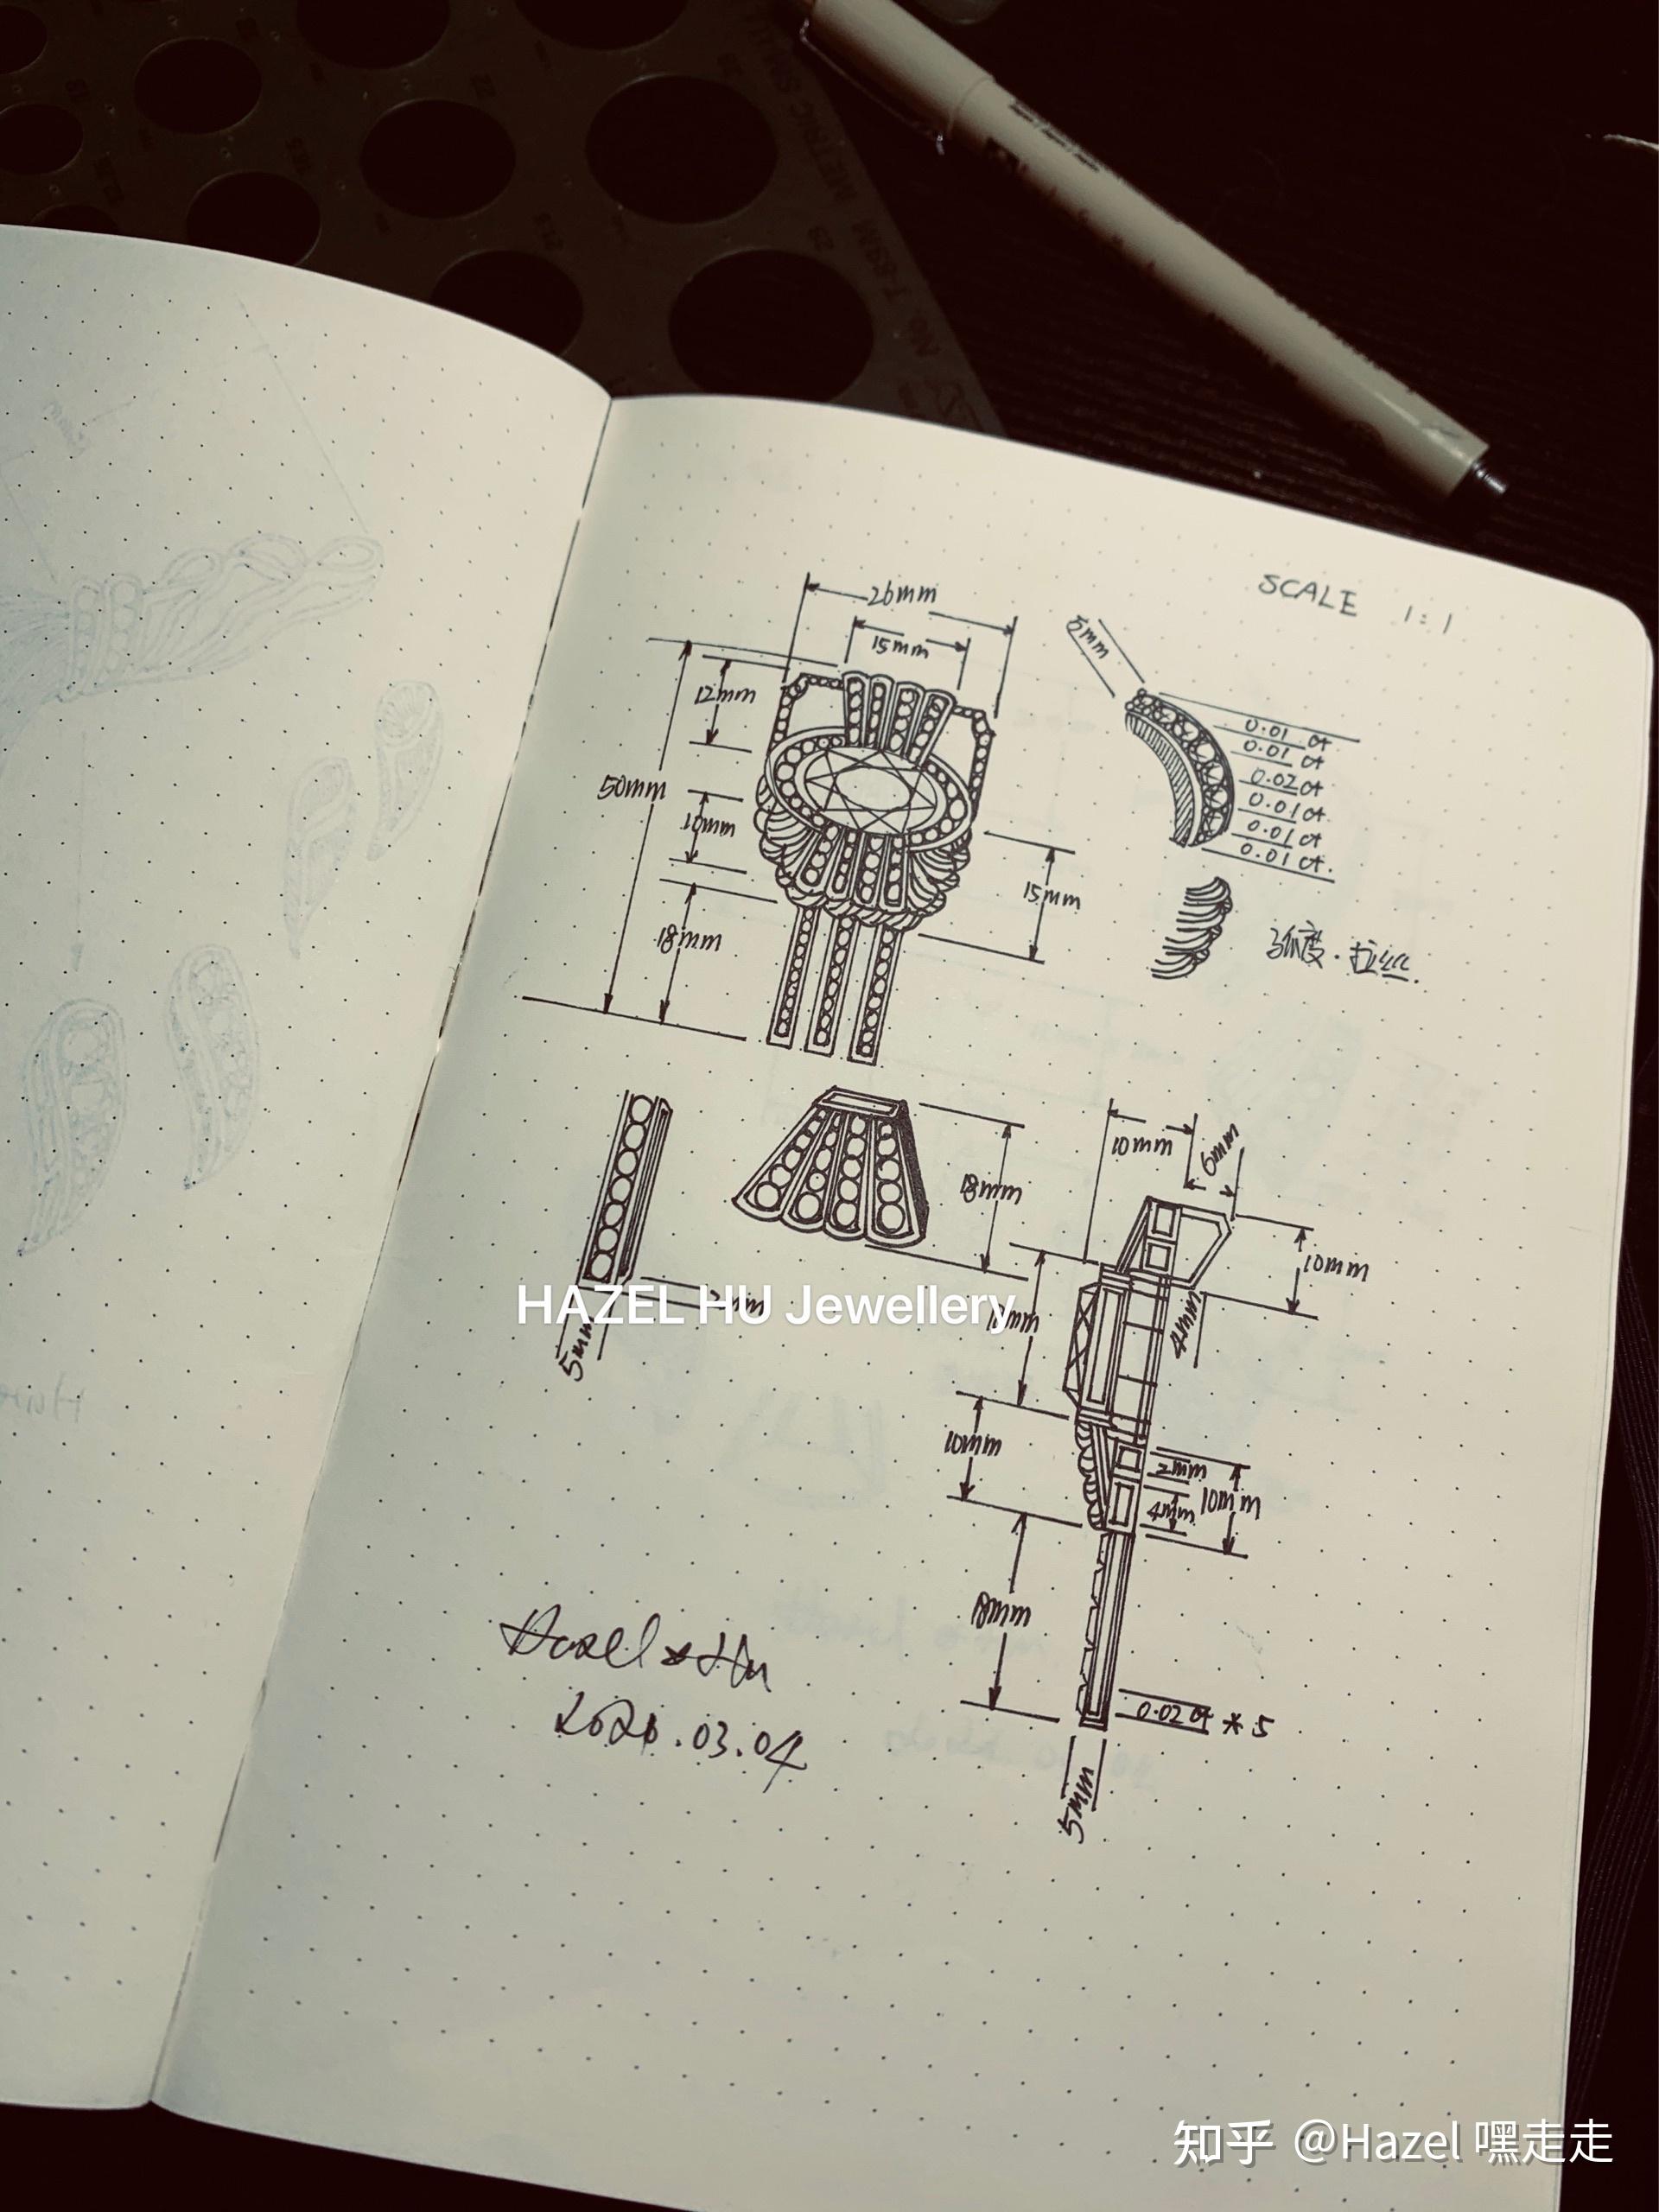 METRIC SSM
No. T-89M
SCALE 1:1
26mm
15mm
5mm
12mm
50mm
10mm
18mm
15mm
0.01 ct
0.01 ct
0.02 ct
0.01 ct
0.01 ct
0.01 ct.
弧度·拉丝.
18mm
10mm
6mm
10mm
4mm
5mm
HAZEL HU Jewellery
10mm
2mm
4mm
10mm
18mm
0.02 ct * 5
5mm
Hazel * Hu
2020.03.04
知乎 @Hazel 嘿走走